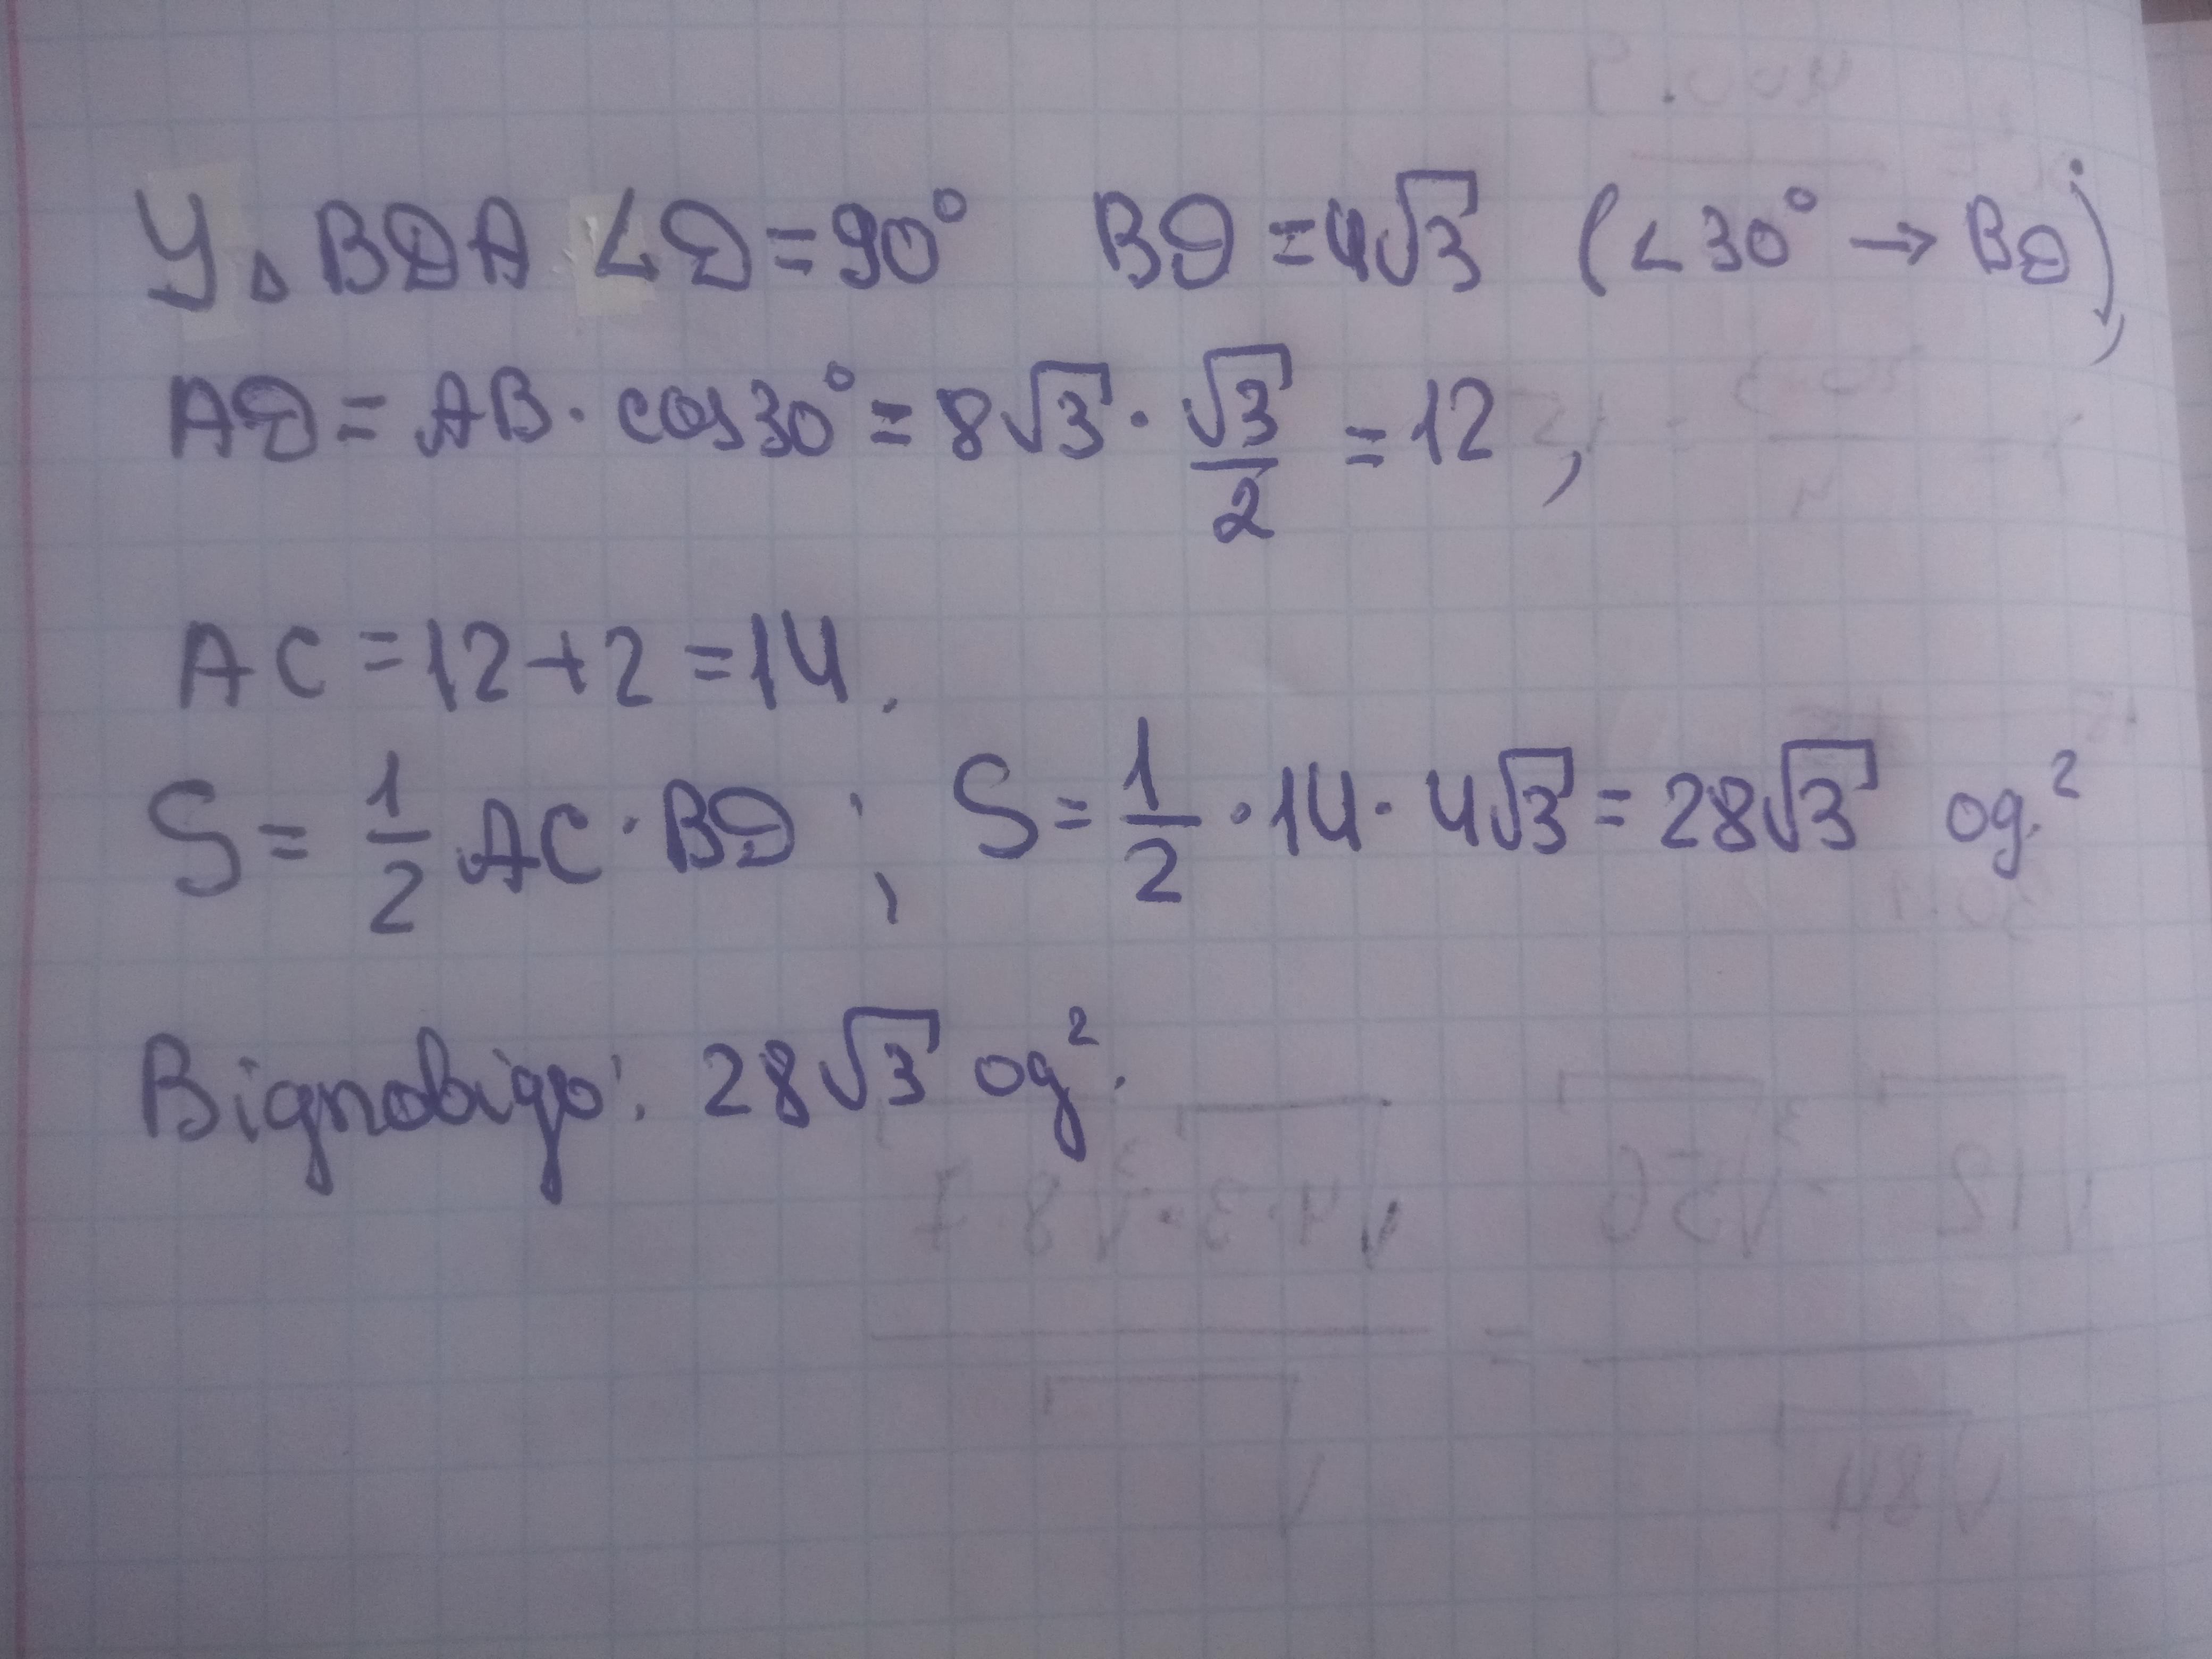 У △ BDA ∠D = 90° BD = 4√3 (∠30° → BD),
AD = AB · cos30° = 8√3 · √3/2 = 12,
AC = 12 + 2 = 14.
S = 1/2 AC · BD ; S = 1/2 · 14 · 4√3 = 28√3 од.²
Відповідь: 28√3 од².